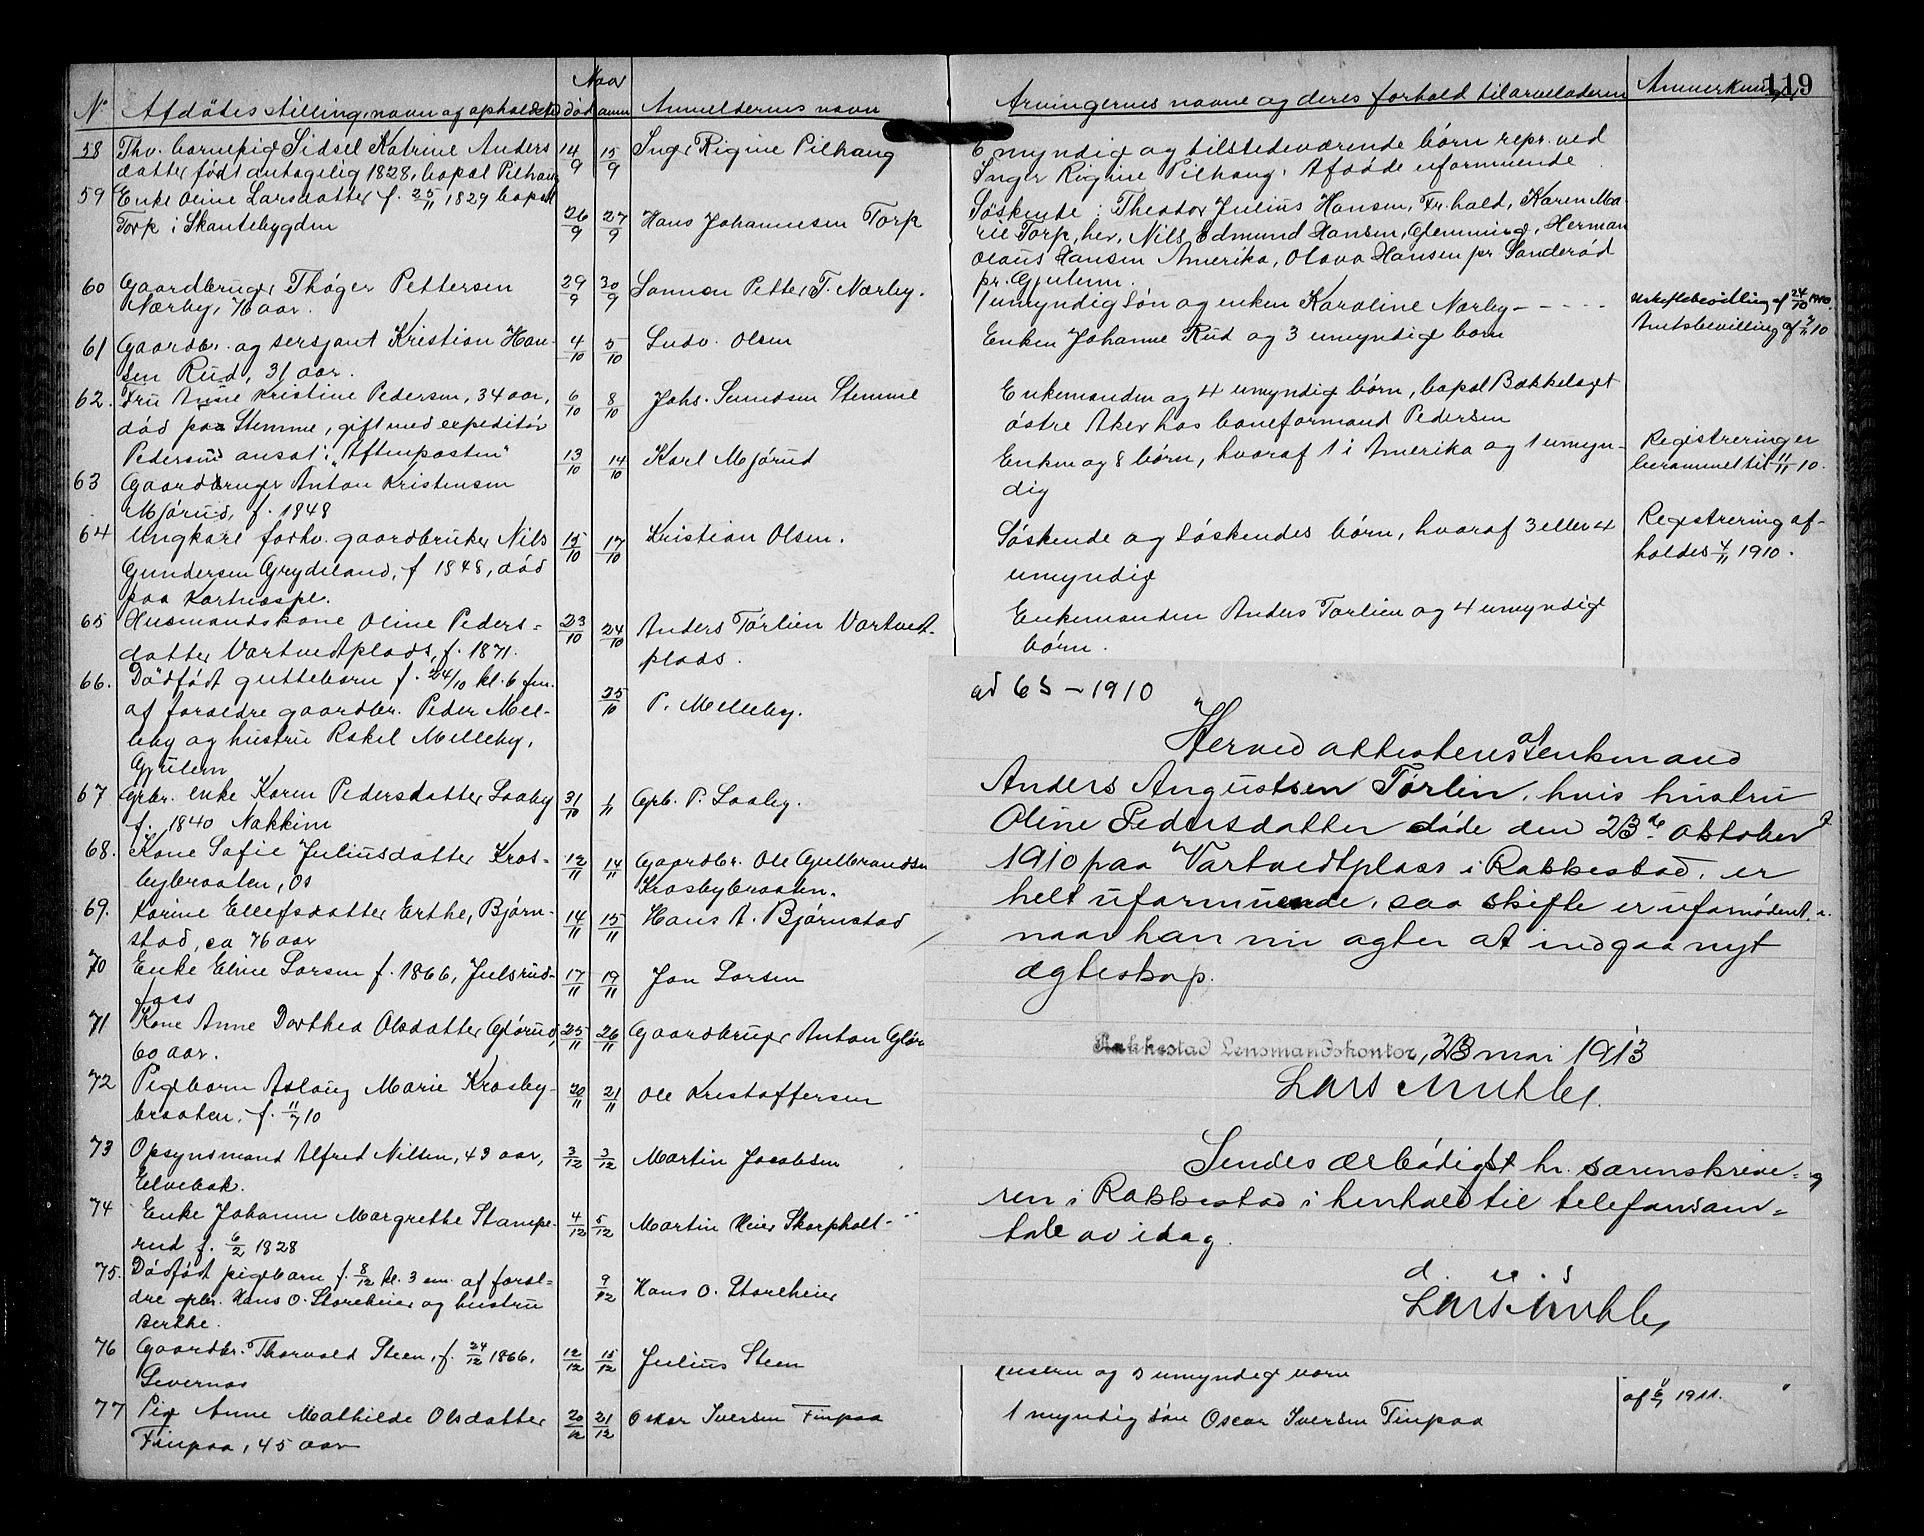 119
Naar
No Afdödes stilling, navn og opholdssted död anm Anmelderens navn
58 Thv. barnepige Sidsel Katrine Anders 14/9 15/9 Inger Rigine Pilhaug
datter født antagelig 1828, bopæl Pilhaug
59 Enke Oline Larsdatter f. 25/11 1829 bopæl
Torp i Skantebygden 26/9 27/9 Hans Johannesen Torp
60 Gaardbruger Thøger Pettersen 29/9 30/9 Sønnen Petter T. Nærby.
Nærby, 76 aar.
61 Gaardbr. og sersjant Kristian Han- 4/10 5/10 Ludv. Olsen
sen Rud, 31 aar.
62. Fru Anne Kristine Pedersen, 34 aar, 6/10 8/10 Johs. Semdsen Stemme
död paa Stemme, gift med expeditör
Pedersen ansat i "Aftenposten"
63 Gaardbruger Anton Kristensen 13/10 14/10 Karl Mjørud
Mjørud, f. 1848
64 Ungkarl forhv. gaardbruker Nils 15/10 17/10 Kristian Olsen.
Gundersen Grydeland, f 1848, död
paa Kornesspl.
65 Husmandskone Oline Peders= 23/10 24/10 Anders Tørlien Vartvedt-
datter Vartvedtplads, f. 1871. plads.
66. Dödfödt guttebarn f. 24/10 kl. 6 fm.
af foraldre gaardbr. Peder Mel- 25/10 P. Melleby.
leby og hustru Rakel Melleby,
Gjulem
67 Grbr. enke Karen Pedersdatter Saaby 31/10 1/11 Grb. P. Saaby.
f. 1840 Nakkim
68. Kone Sofie Juliusdatter Kros- 12/11 14/11 Gaardbr. Ole Gulbrandsen
bybraaten, Os Krosbybraaten.
69. Karine Ellefsdatter Erthe, Bjørn- 14/11 15/11 Hans A. Bjørnstad
stad, ca 76 aar
70 Enke Eline Larsen f. 1866, Julsrud- 17/11 19/11 Jon Larsen
foss
71 Kone Anne Dorthea Olsdatter Glørud, 25/11 26/11 Gaardbruger Anton Glør
60 aar.
72 Pigebarn Aslaug Marie Krosby- 20/11 21/11 Ole Kristoffersen
braaten, f. 11/7 10
73 Opsynsmand Alfred Nilsen, 43 aar, 3/12 3/12 Martin Jacobsen
Elvebak.
74 Enke Johanne Margrethe Stampe- 4/12 5/12 Martin Heier Skarpholt
rud f. 6/2 1828
75. Dödfödt pigebarn f. 8/12 kl. 3 em. af foræl=
dre grbr. Hans O. Storeheier og hustru 9/12 Hans O. Storeheier
Berthe.
76 Gaardbr. Thorvald Steen, f. 24/12 1866, 12/12 15/12 Julius Steen
Levernæs
77 Pige Anne Mathilde Olsdatter 20/12 21/12 Oskar Iversen Finpaa
Finpaa, 45 aar
Arvingernes navne og deres forhold til arveladeren Anmerkning
6 myndige og tilstedeværende börn repr. ved
Inger Rigine Pilhaug. Afdøde uformuende
Søskende: Theodor Julius Hansen, Fr.hald, Karen Ma-
rie Torp, her, Nils Edmund Hansen, Glemminge, Herman
Olaus Hansen Amerika, Olava Hansen pr. Sanderød
pr. Gjulem.
1 umyndig søn og enken Karoline Nærby - - - - Uskiftebevilling af 24/10 1910.
Enken Johanne Rud og 3 umyndige barn Amtsbevilling af 7/2 10
Enkemanden og 4 umyndige börn, bopæl Bækkelaget
østre Aker hos baneformand Pedersen
Enken og 8 börn, hvoraf 1 i Amerika og 1 umyn- Registrering er
dig berammet til 11/11 10.
Søskende og söskendes börn, hvoraf 3 eller 4 Registrering af-
umyndige holdes 4/11 1910.
Enkemanden Anders Tørlien og 4 umyndige
børn.
ad 65 - 1910
Herved attesteres at enkmand
Anders Augustsen Tørlien, hvis hustru
Oline Pedersdatter døde den 23de oktober
1910 paa Vartvedtplass i Rakkestad, er
helt uformuende, saa skifte er ufornødent,
naar han nu agter at indgaa nyt
ægteskap.
Rakkestad Lensmandskontor, 23 mai 1913
Lars Muhle.
Sendes ærbödigst hr. sorenskrive=
ren i Rakkestad i henhold til telefonsam=
tale av idag.
d. u. s
Lars Muhle
hustru og 5 umyndige børn
1 myndig søn Oscar Iversen Finpaa
af 6/7 1911.